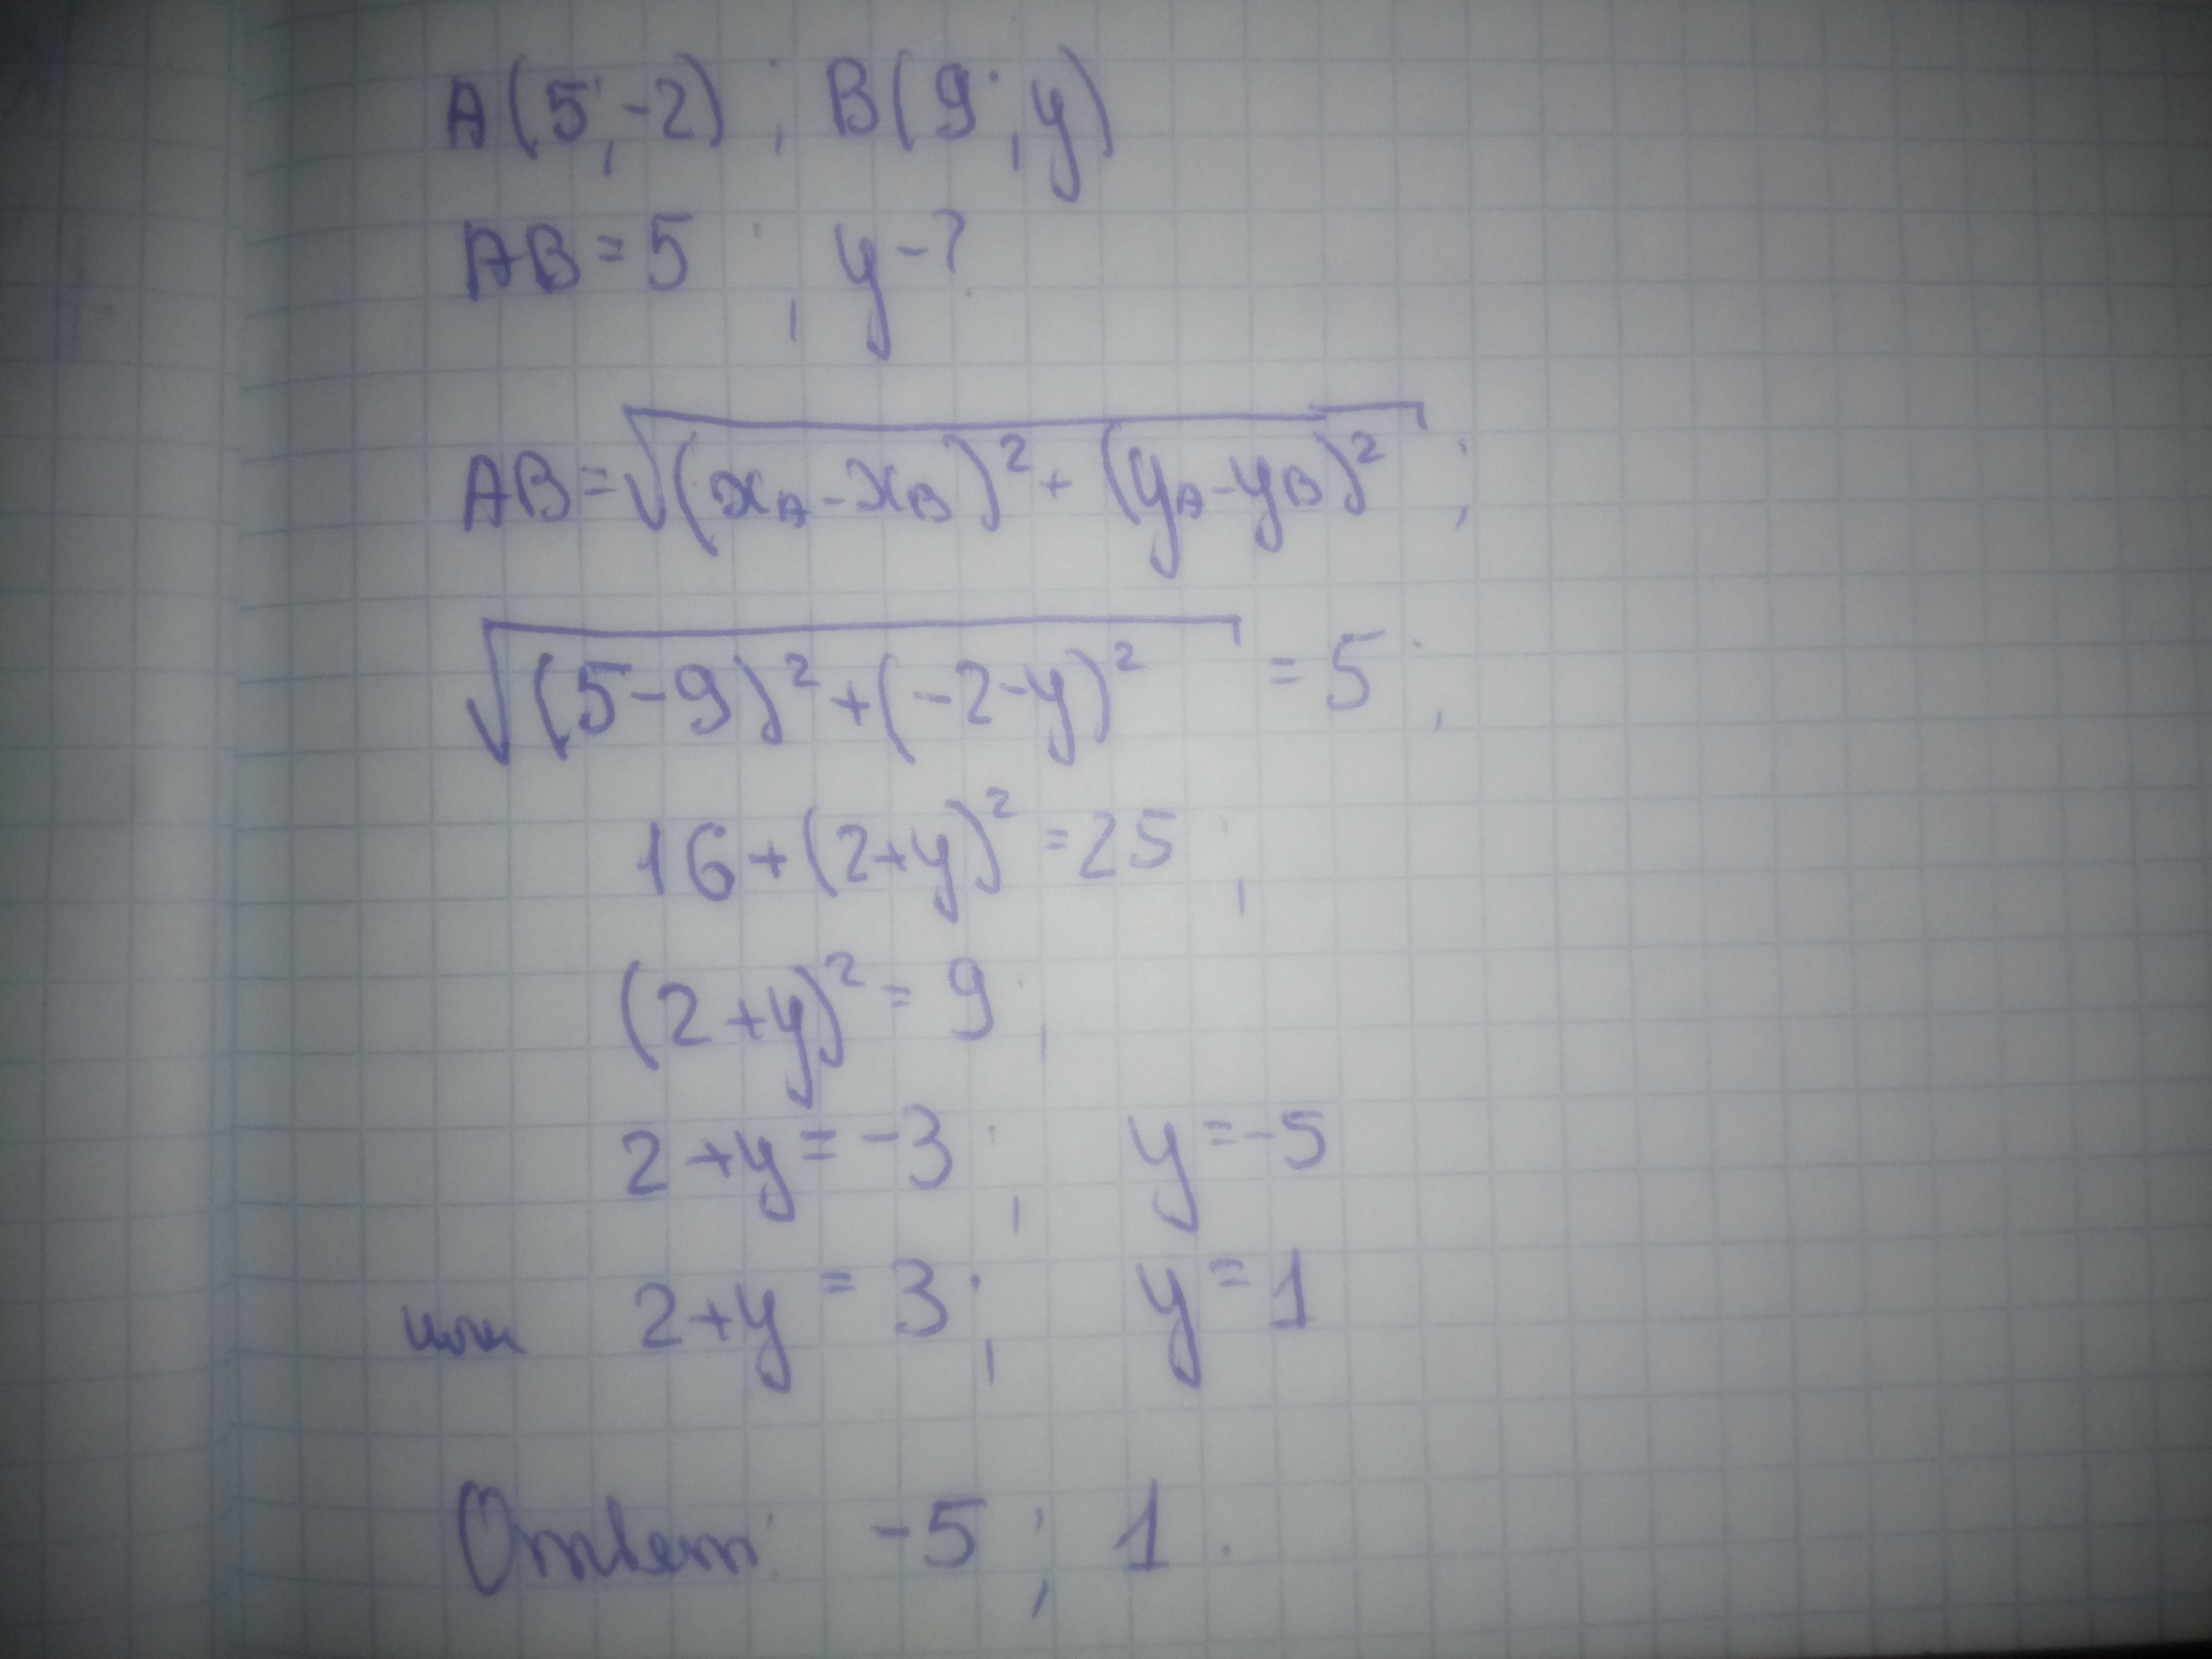 A(5;-2); B(9;y)
AB=5; y-?
AB=√((x_A-x_B)²+(y_A-y_B)²);
√((5-9)²+(-2-y)²)=5;
16+(2+y)²=25;
(2+y)²=9;
2+y=-3; y=-5
или 2+y=3; y=1
Ответ: -5; 1.